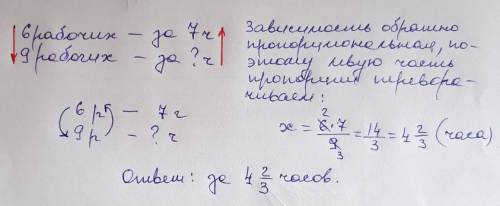 6 рабочих – за 7 ч
9 рабочих – за ? ч
Зависимость обратно
пропорциональная, по-
этому левую часть
пропорции перевора-
чиваем:
6 р – 7 ч
9 р – ? ч
x = 6·7/9 = 14/3 = 4 2/3 (часа)
2
3
Ответ: за 4 2/3 часов.